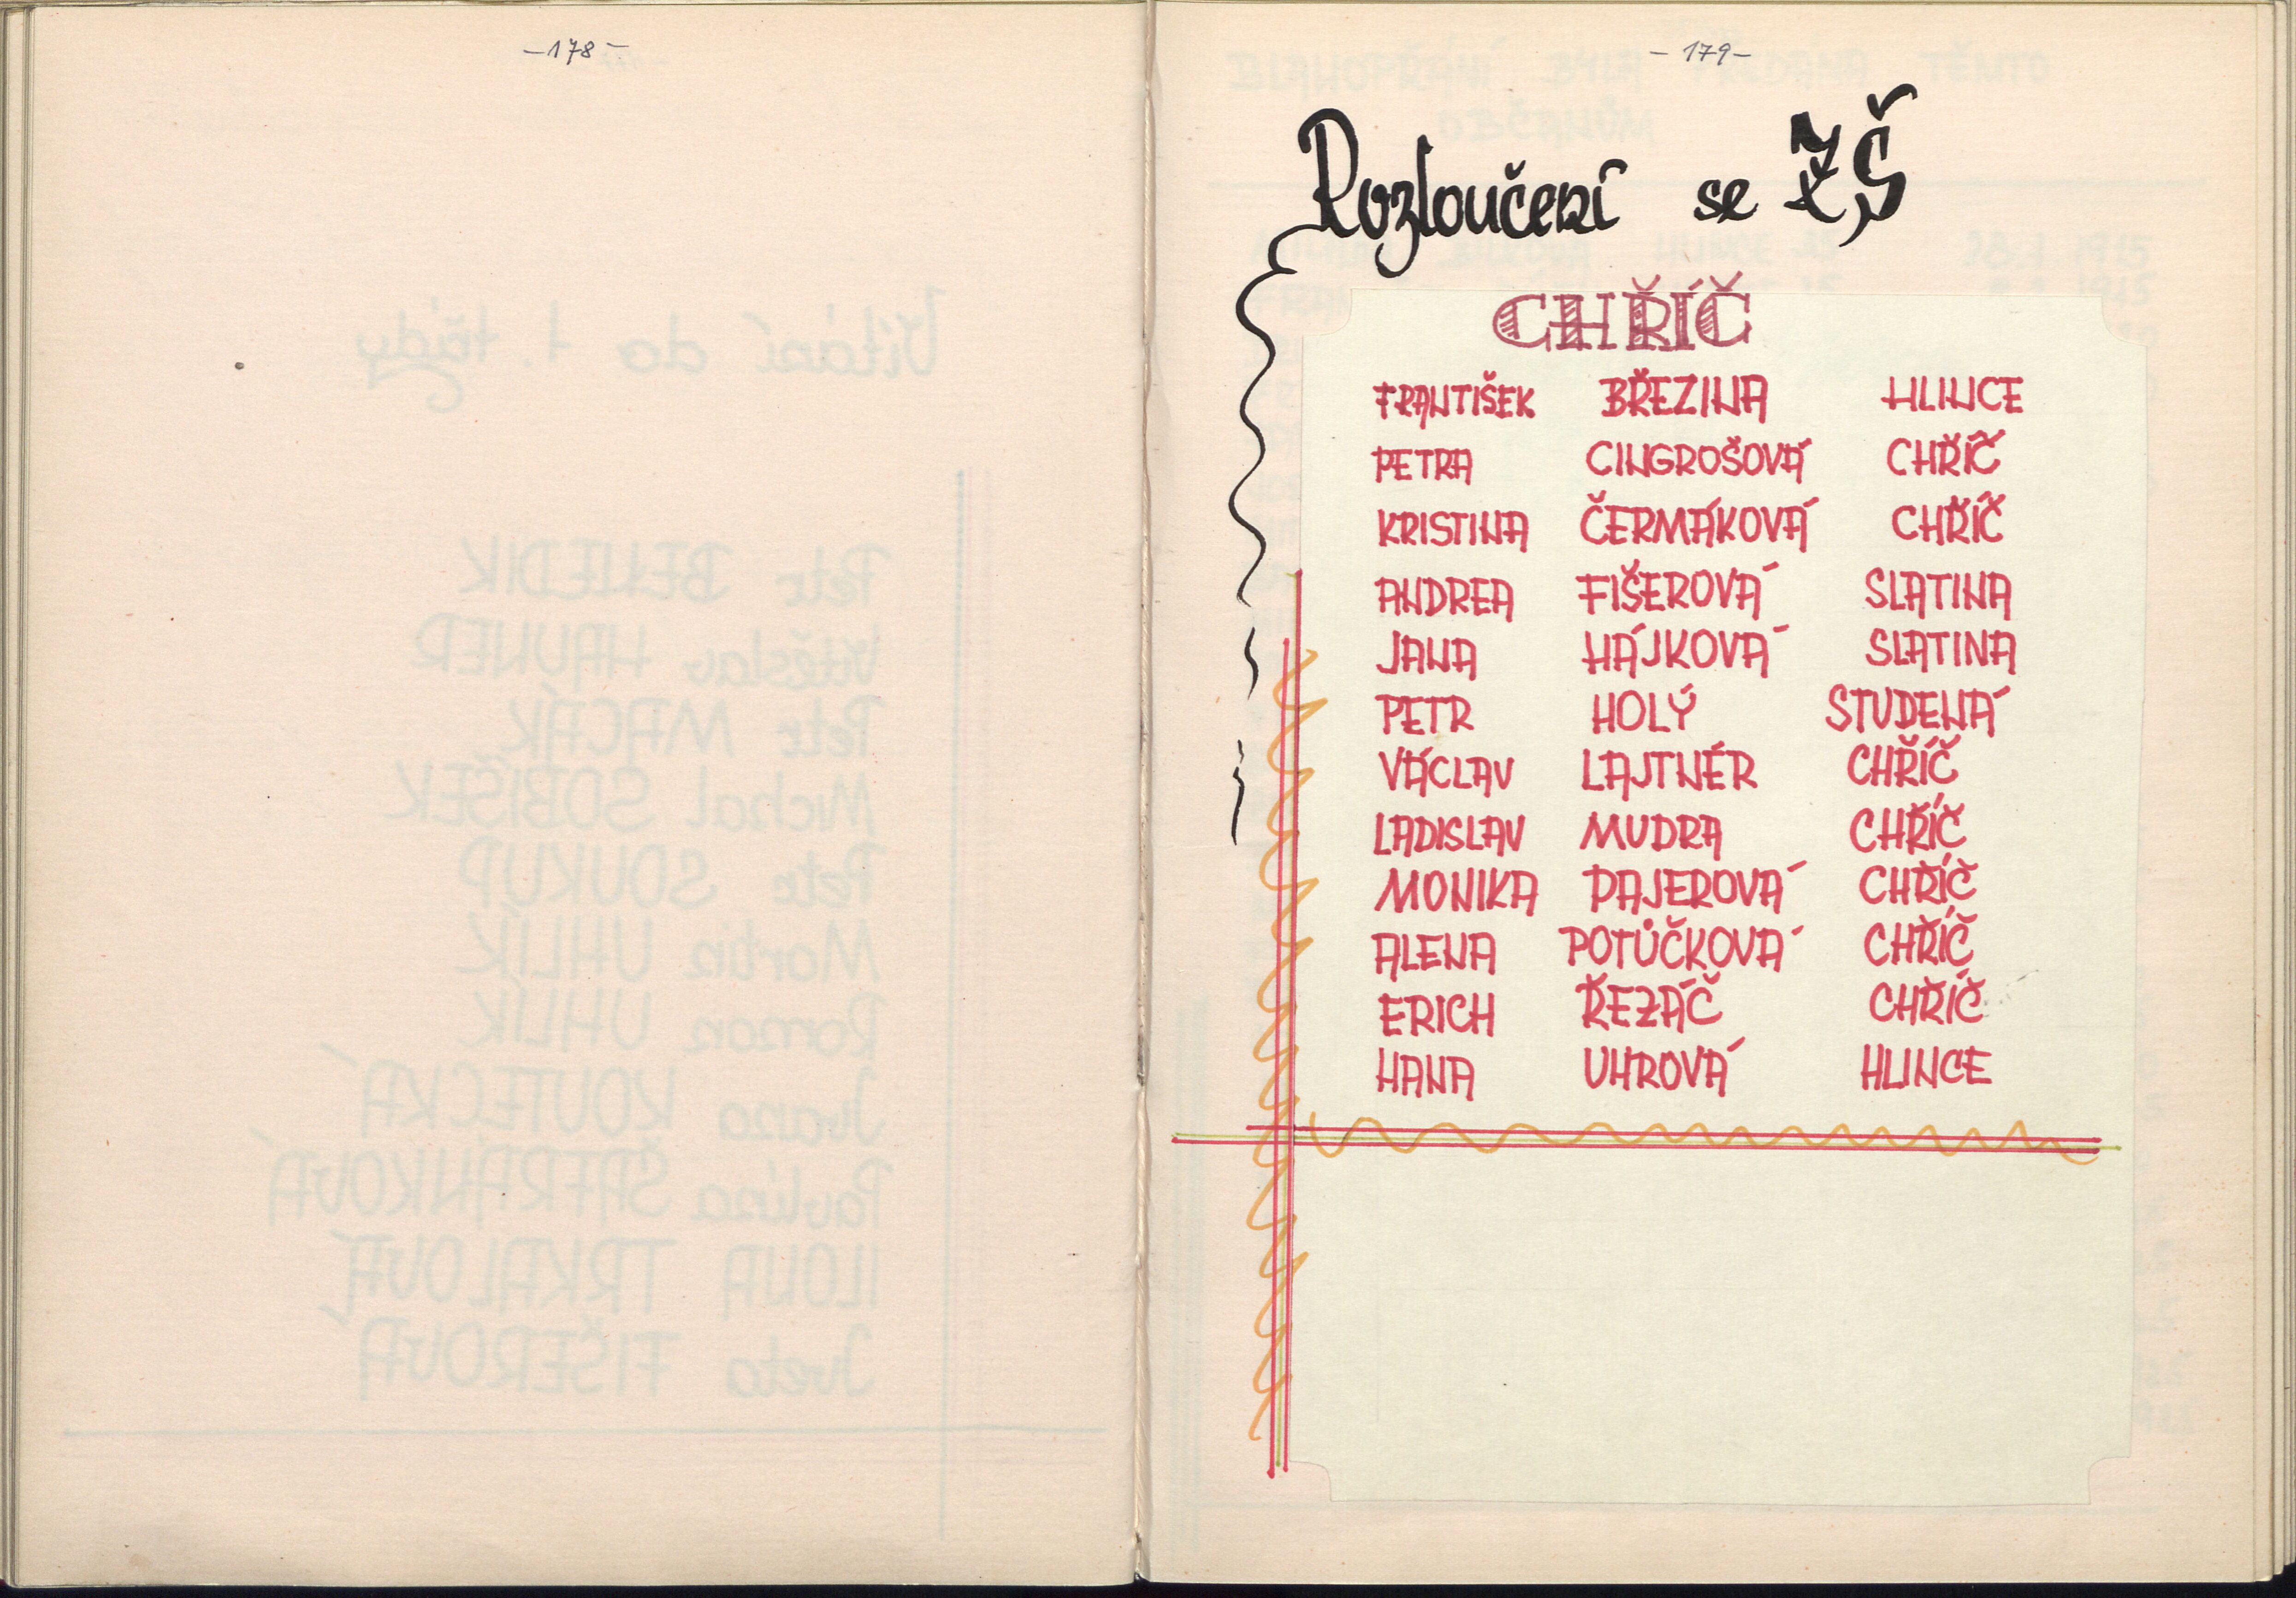 -178-
-179-
Rozloučení se ZŠ
CHŘÍČ
FRANTIŠEK BŘEZINA HLINCE
PETRA CINGROŠOVÁ CHŘÍČ
KRISTINA ČERMÁKOVÁ CHŘÍČ
ANDREA FIŠEROVÁ SLATINA
JANA HÁJKOVÁ SLATINA
PETR HOLÝ STUDENÁ
VÁCLAV LAJTNÉR CHŘÍČ
LADISLAV MUDRA CHŘÍČ
MONIKA PAJEROVÁ CHŘÍČ
ALENA POTŮČKOVÁ CHŘÍČ
ERICH ŘEZÁČ CHŘÍČ
HANA UHROVÁ HLINCE